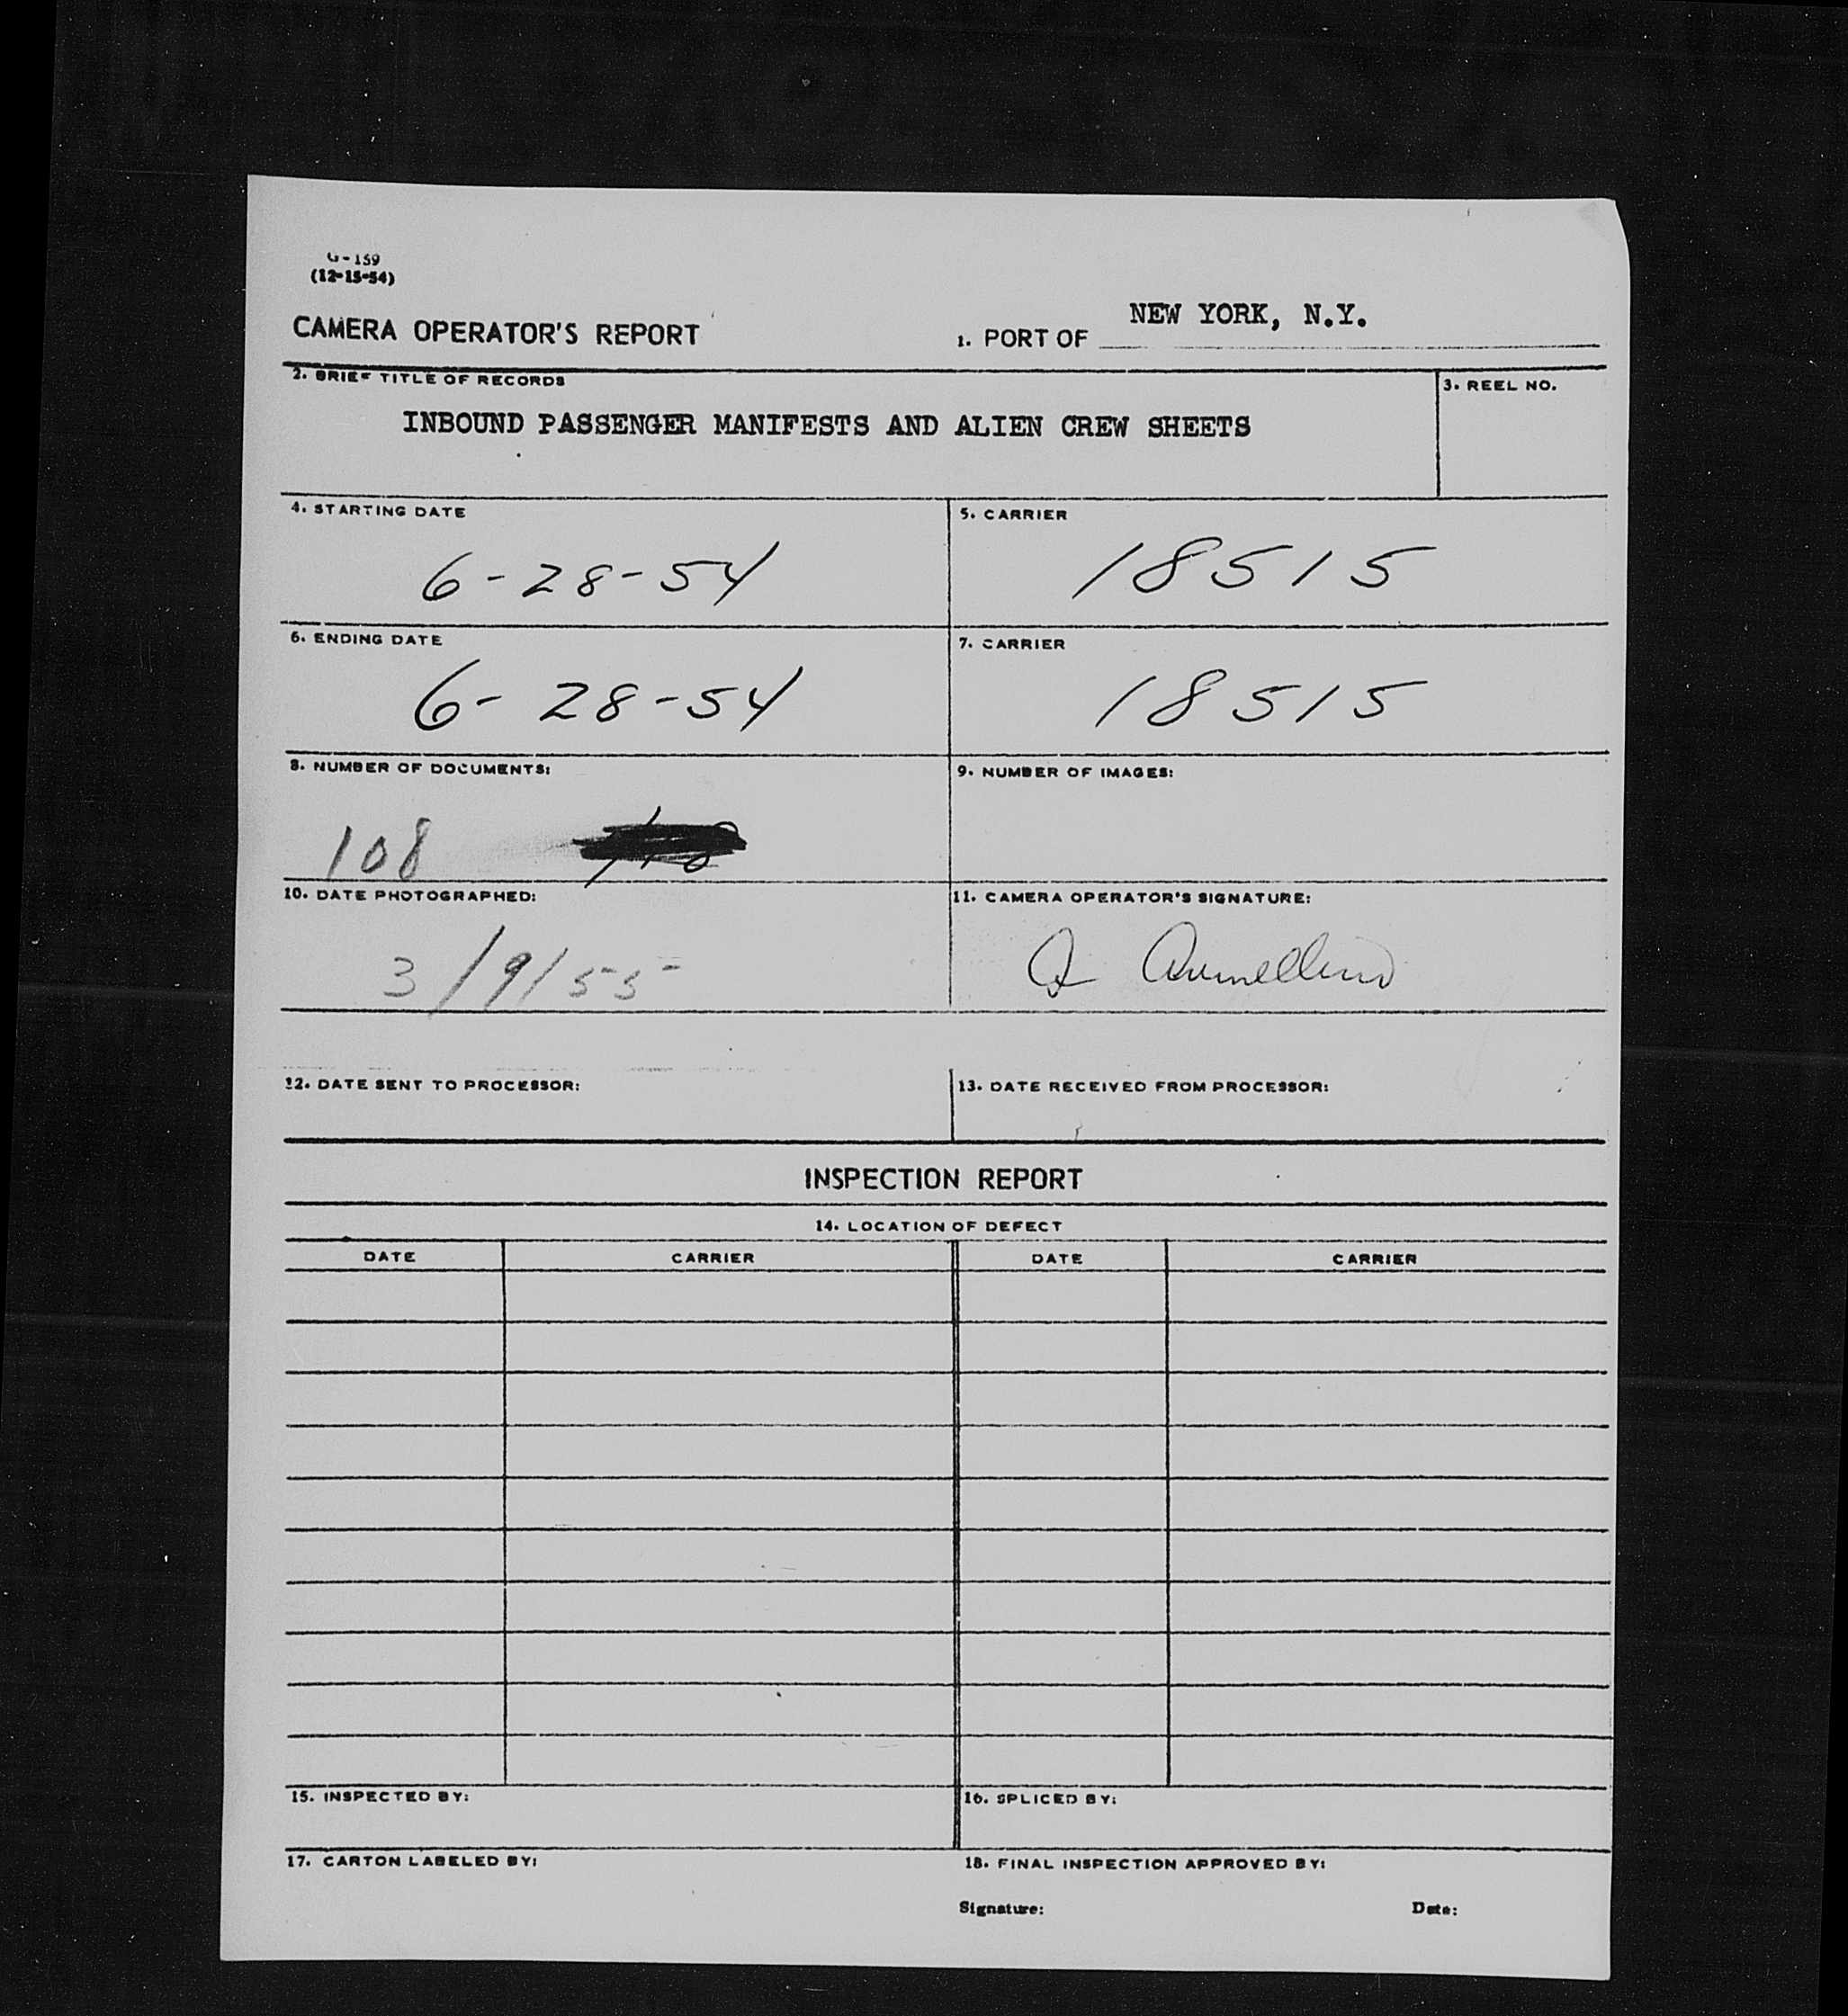 G-159
(12-15-54)
CAMERA OPERATOR'S REPORT
1. PORT OF NEW YORK, N.Y.
2. BRIEF TITLE OF RECORDS
INBOUND PASSENGER MANIFESTS AND ALIEN CREW SHEETS
3. REEL NO.
4. STARTING DATE
6-28-54
5. CARRIER
18515
6. ENDING DATE
6-28-54
7. CARRIER
18515
8. NUMBER OF DOCUMENTS:
108
9. NUMBER OF IMAGES:
10. DATE PHOTOGRAPHED:
3/9/55
11. CAMERA OPERATOR'S SIGNATURE:
12. DATE SENT TO PROCESSOR:
13. DATE RECEIVED FROM PROCESSOR:
INSPECTION REPORT
14. LOCATION OF DEFECT
DATE CARRIER DATE CARRIER
15. INSPECTED BY:
16. SPLICED BY:
17. CARTON LABELED BY:
18. FINAL INSPECTION APPROVED BY:
Signature: Date: